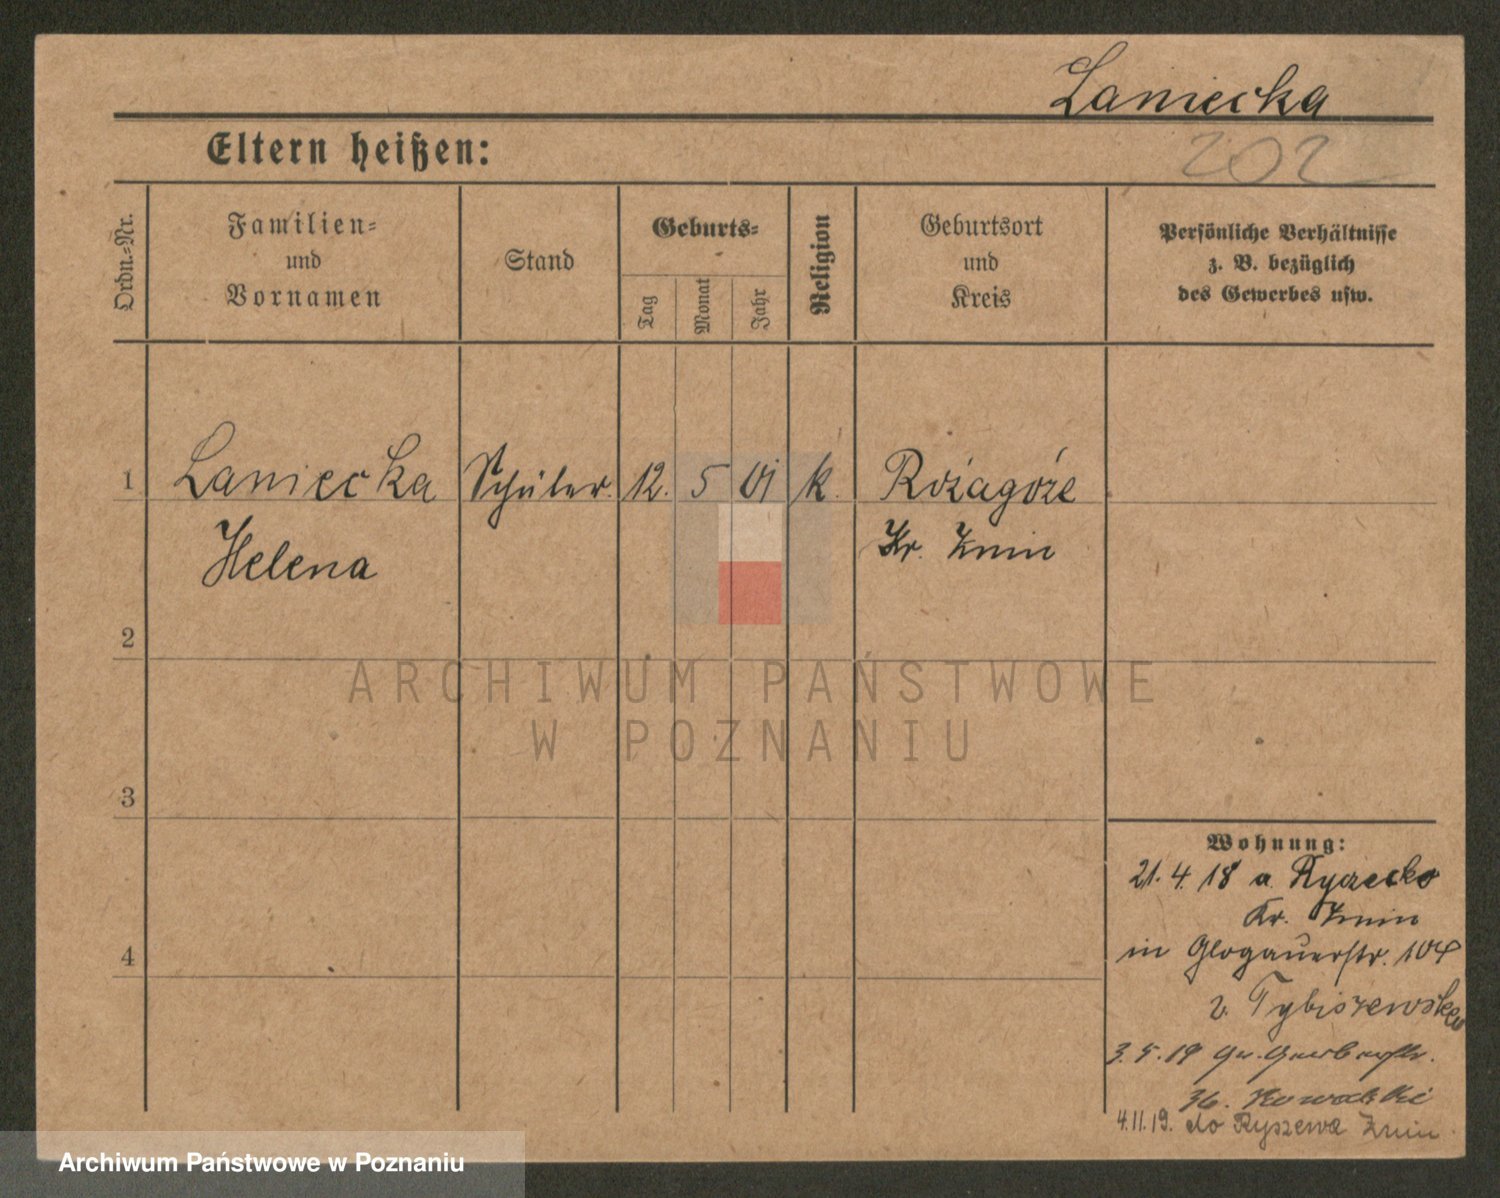 Laniecka
Eltern heißen:
202
Ordn.-Nr.
Familien-
und
Vornamen
Stand
Geburts-
Tag
Monat
Jahr
Religion
Geburtsort
und
Kreis
Persönliche Verhältnisse
z. B. bezüglich
des Gewerbes usw.
1 Laniecka Schüler. 12. 5 01 k. Rożagóże
Helena Kr. Znin
2
ARCHIWUM PAŃSTWOWE
W POZNANIU
3
Wohnung:
21. 4. 18 a. Ryszecko
Kr. Znin
4
in Glogauerstr. 104
b. Tybiszewska
3. 5. 19 Gr. Gerberstr.
36. Kowalski
4.11.19. do Ryszewa Znin
Archiwum Państwowe w Poznaniu